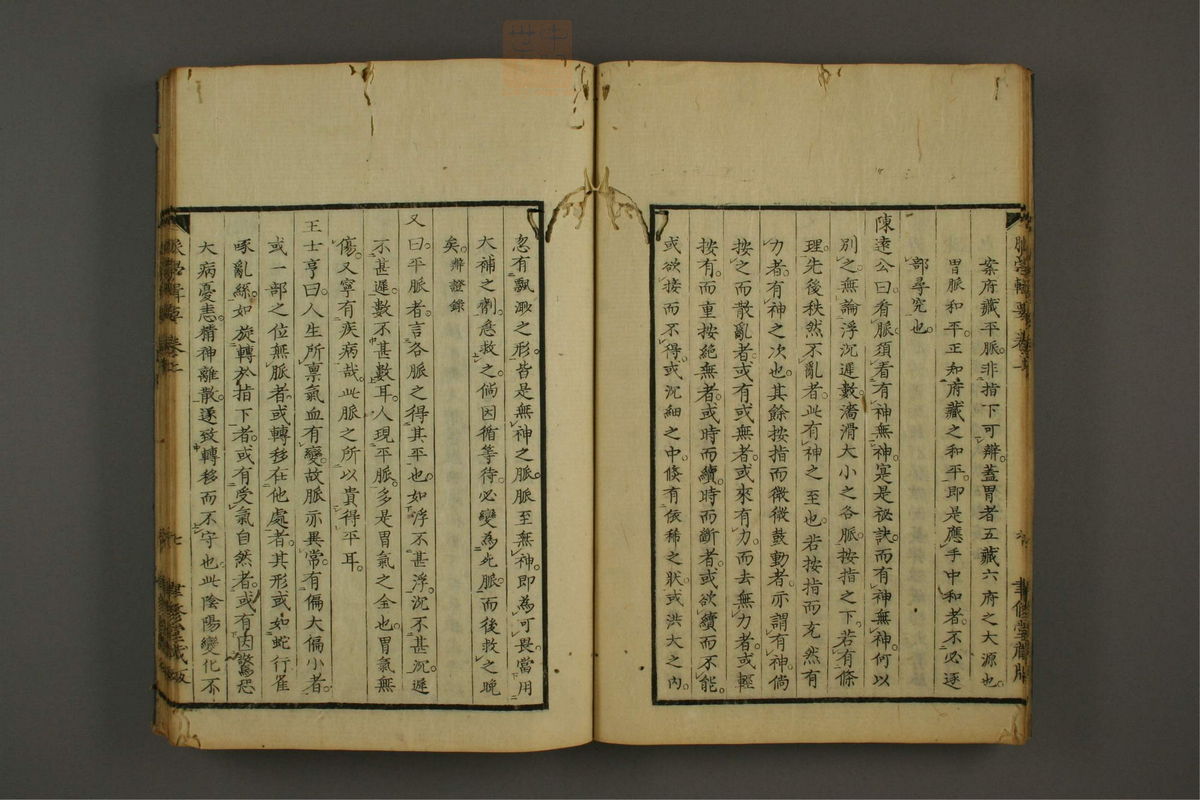 案府藏平脈非指下可辨蓋胃者五藏六府之大源也
胃脈和平正知府藏之和平即是應手中和者不必逐
部尋究也
陳遠公曰看脈須看有神無神寔是祕訣而有神無神何以
別之無論浮沉遲數濇滑大小之各脈按指之下若有條
理先後秩然不亂者此有神之至也若按指而充然有
力者有神之次也其餘按指而微微鼓動者亦謂有神倘
按之而散亂者或有或無者或來有力而去無力者或輕
按有而重按絕無者或時而續時而斷者或欲續而不能
或欲接而不得或沉細之中倐有依稀之狀或洪大之內
忽有飄渺之形皆是無神之脈脈至無神即為可畏當用
大補之劑急救之倘因循等待必變為死脈而後救之晚
矣辨證錄
又曰平脈者言各脈之得其平也如浮不甚浮沉不甚沉遲
不甚遲數不甚數耳人現平脈多是胃氣之全也胃氣無
傷又寧有疾病哉此脈之所以貴得平耳
王士亨曰人生所禀氣血有變故脈亦異常有偏大偏小者
或一部之位無脈者或轉移在他處者其形或如蛇行雀
啄亂絲如旋轉於指下者或有受氣自然者或有因驚恐
大病憂恚精神離散遂致轉移而不守也此陰陽變化不
脈學輯要 卷上
七
聿修堂藏版